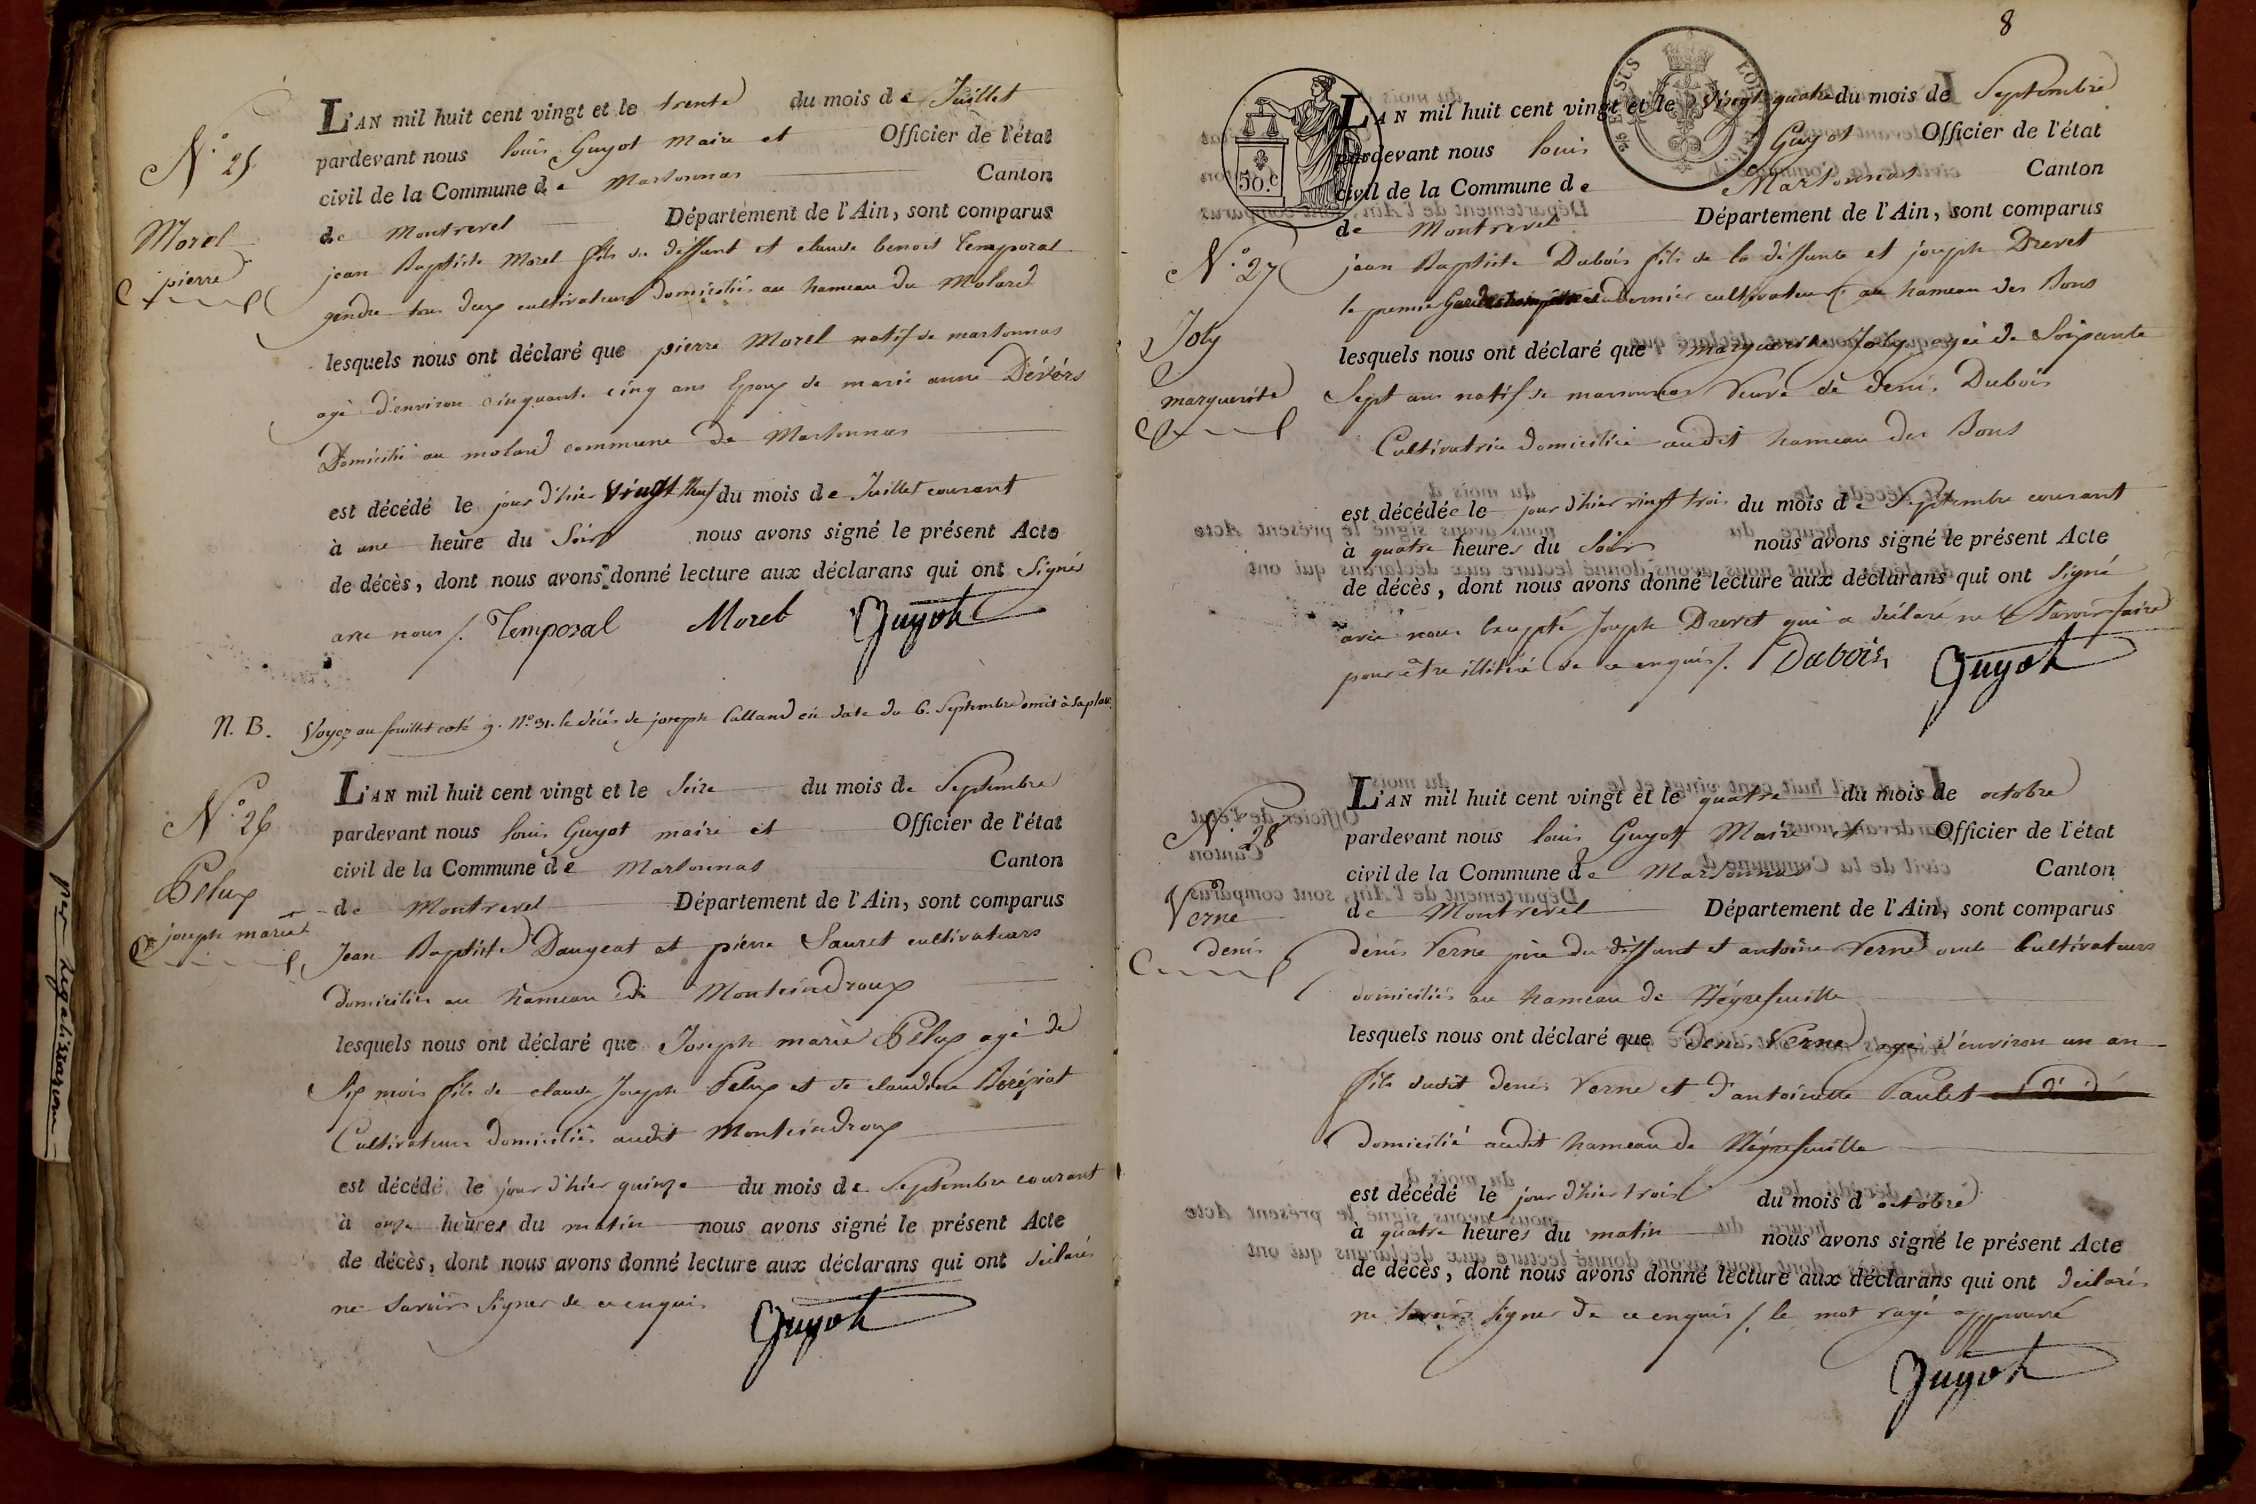 N.° 25
Morel
pierre
L'AN mil huit cent vingt et le trente du mois de Juillet
pardevant nous louis Guyot Maire et Officier de l'état
civil de la Commune de Marsonnas Canton
de Montrevel Département de l'Ain, sont comparus
jean Baptiste Morel fils du deffunt et claude benoit Temporal
gendre tous deux cultivateurs domiciliés au hameau du Molard
lesquels nous ont déclaré que pierre Morel natif de marsonnas
agé d'environ cinquante cinq ans Epoux de marie anne Dévérs
Domicilié au molard commune de Marsonnas
est décédé le jour d'hier vingt Neuf du mois de Juillet courant
à une heure du Soir nous avons signé le présent Acte
de décès, dont nous avons donné lecture aux déclarans qui ont Signés
avec nous /. Temporal Morel Guyot
N. B. Voyez au feuillet coté 9. N.° 31. le décés de joseph Calland en date du 6. Septembre omis à sa place
N.° 26
Pélux
joseph marie
L'AN mil huit cent vingt et le Seize du mois de Septembre
pardevant nous louis Guyot maire et Officier de l'état
civil de la Commune de Marsonnas Canton
de Montrevel Département de l'Ain, sont comparus
Jean Baptiste Daugeat et pierre Sauret cultivateurs
domiciliés au hameau de Monteindroux
lesquels nous ont déclaré que Joseph marie Pélux agé de
Six mois fils de claude Joseph Pelux et de claudine
Cultivateurs domiciliés audit Monteindroux
est décédé le jour d'hier quinze du mois de Septembre courant
à onze heures du matin nous avons signé le présent Acte
de décès, dont nous avons donné lecture aux déclarans qui ont déclarés
ne Savoir Signer de ce enquis Guyot
8
50.c
N.° 27
Joly
marguerite
L'AN mil huit cent vingt et le Vingt quatre du mois de Septembre
pardevant nous louis Guyot Officier de l'état
civil de la Commune de Marsonnas Canton
de Montrevel Département de l'Ain, sont comparus
jean Baptiste Dubois fils de la déffunte et joseph Drevet
le premier Garde champêtre et le dernier cultivateur au hameau des Bons
lesquels nous ont déclaré que marguerite Joly agée de Soixante
Sept ans natif de marsonnas Veuve de denis Dubois
Cultivatrice domiciliée audit hameau des Bons
est décédée le jour d'hier vingt trois du mois de Septembre courant
à quatre heures du Soir nous avons signé le présent Acte
de décès, dont nous avons donné lecture aux déclarans qui ont Signé
avec nous Excepté Joseph Drevet qui a déclaré ne le Savoir faire
pour être illitéré de ce enquis /. Dubois Guyot
N.° 28
Verne
denis
L'AN mil huit cent vingt et le quatre du mois de octobre
pardevant nous louis Guyot Maire et Officier de l'état
civil de la Commune de Marsonnas Canton
de Montrevel Département de l'Ain, sont comparus
denis Verne père du déffunt et antoine Verne oncle Cultivateurs
domiciliés au hameau de Négrefeuille
lesquels nous ont déclaré que Denis Verne agé d'environ un an
fils dudit denis Verne et d'antoinette Paulet
domicilié audit hameau de Négrefeuille
est décédé le jour d'hier trois du mois d octobre
à quatre heures du matin nous avons signé le présent Acte
de décès, dont nous avons donné lecture aux déclarans qui ont déclarés
ne Savoir Signer de ce enquis /. le mot rayé approuvé
Guyot